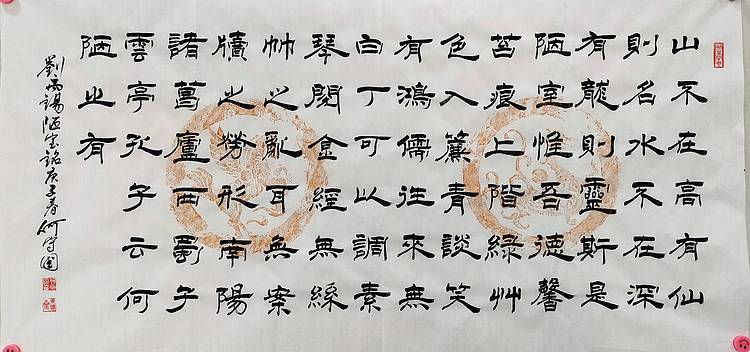 山不在高有仙
則名水不在深
有龍則靈斯是
陋室惟吾德馨
苔痕上階綠艸
色入簾青談笑
有鴻儒往來無
白丁可以調素
琴閱金經無絲
竹之亂耳無案
牘之勞形南陽
諸葛廬西蜀子
雲亭孔子云何
陋之有
劉禹錫陋室銘庚子春何守國